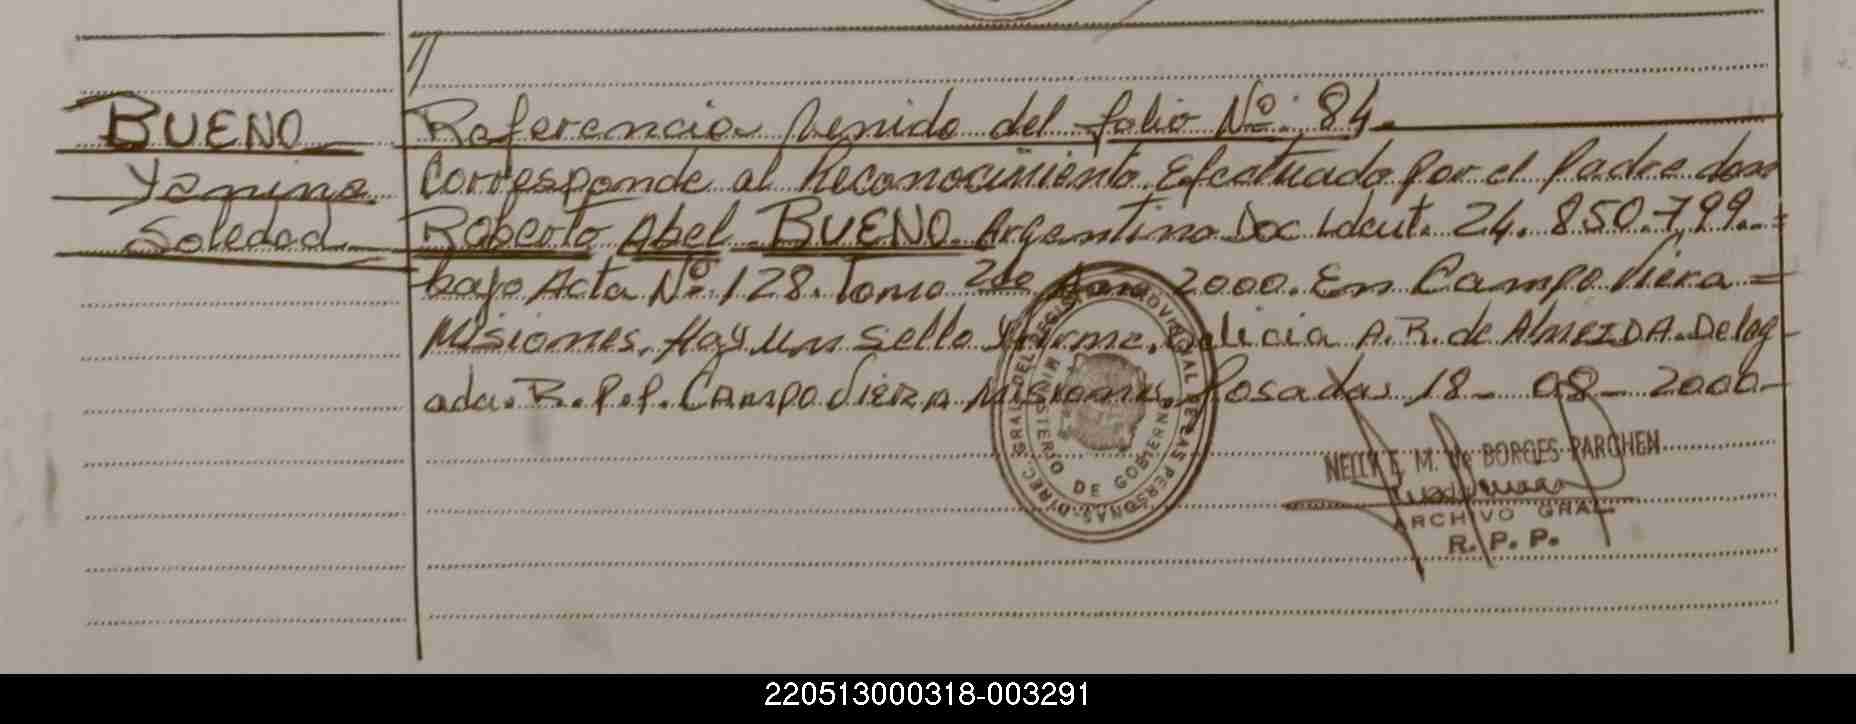 //
BUENO
Yanina
Soledad
Referencia Venida del folio Nº: 84.
Corresponde al Reconocimiento Efectuado por el Padre don
Roberto Abel BUENO. Argentino Doc Ident. 24.850.799.=
bajo Acta Nº 128. Tomo 2do Año 2000. En Campo Viera =
Misiones. Hay un Sello y firma. Delicia A. R. de AlmEIDA. Deleg-
ada. R.P.P. CAmpo ViERA Misiones. Posadas 18-08-2000-
DIREC. GRAL DEL REGISTRO PROVINCIAL DE LAS PERSONAS
MINISTERIO DE GOBIERNO
NELLY E. M. de BORGES PARCHEN
ARCHIVO GRAL
R. P. P.
220513000318-003291